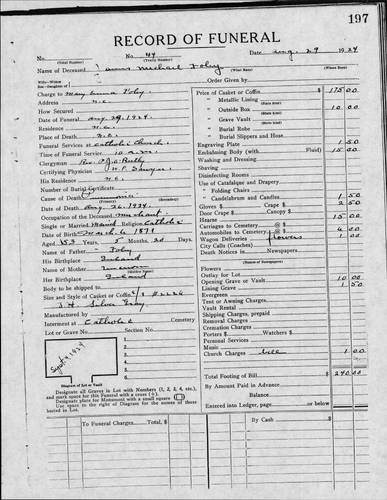 197
RECORD OF FUNERAL
No. No. 44 Date Aug. 29 1924
(Total Number) (Yearly Number)
Name of Deceased James Michael Foley
(What Race) (Where Born)
Son—Daughter of Order Given by
Charge to Mary Emma Foley
Address N.C.
How Secured
Date of Death Aug. 29, 1924.
Residence N.C.
Place of Death N.C.
Funeral Services at Catholic Church
Time of Funeral Service 10 a.m.
Clergyman Rev.
Certifying Physician
His Residence N.C.
Number of Burial Certificate
Cause of Death
Date of
Occupation of the Deceased Merchant
Single or Married Religion Catholic
Date of Birth March 6, 1871
Aged 53 Years, 5 Months, Days
Name of Father Foley
His Birthplace Ireland
Name of Mother
(Maiden Name)
Her Birthplace Ireland
Body to be shipped to
Size and Style of Casket or Coffin
Silver Gray
Manufactured by
Interment at Catholic Cemetery
Lot or Grave No. Section No.
1
2
3
4
5
6
7
8
Sept 4 1924
Diagram of Lot or Vault
Designate all Graves in Lot with Numbers (1, 2, 3, 4, etc.),
and mark space for this Funeral with a cross (+).
Designate place for Monument with a small square
Use space to right of Diagram for the names of those
buried in Lot.
Price of Casket or Coffin $ 175 00
" Metallic Lining
(State Kind)
" Outside Box 10 00
(State Kind)
" Grave Vault
(State Kind)
" Burial Robe
(State Kind)
" Burial Slippers and Hose
Engraving Plate 1 50
Embalming Body (with Fluid) 15 00
Washing and Dressing
Shaving
Disinfecting Rooms
Use of Catafalque and Drapery
" Folding Chairs
" Candelabrum and Candles 1 50
Gloves $ Crape $ 2 50
Door Crape $ Canopy $
Hearse 15 00
Carriages to Cemetery @ $
Automobiles to Cemetery @ $
Wagon Deliveries flowers 1 00
City Calls (Coaches)
Death Notices in Newspapers
(Names of Newspapers)
Flowers
Outlay for Lot
Opening Grave or Vault 10 00
Lining Grave 1 50
Evergreen
Tent or Awning Charges
Vault Rental
Shipping Charges, prepaid
Removal Charges
Cremation Charges
Porters $ Watchers $
Personal Services
Music
Church Charges 1 00
Total Footing of Bill $ 240 00
By Amount Paid in Advance
Balance
Entered into Ledger, page or below.
To Funeral Charges, Total, $
By Cash $